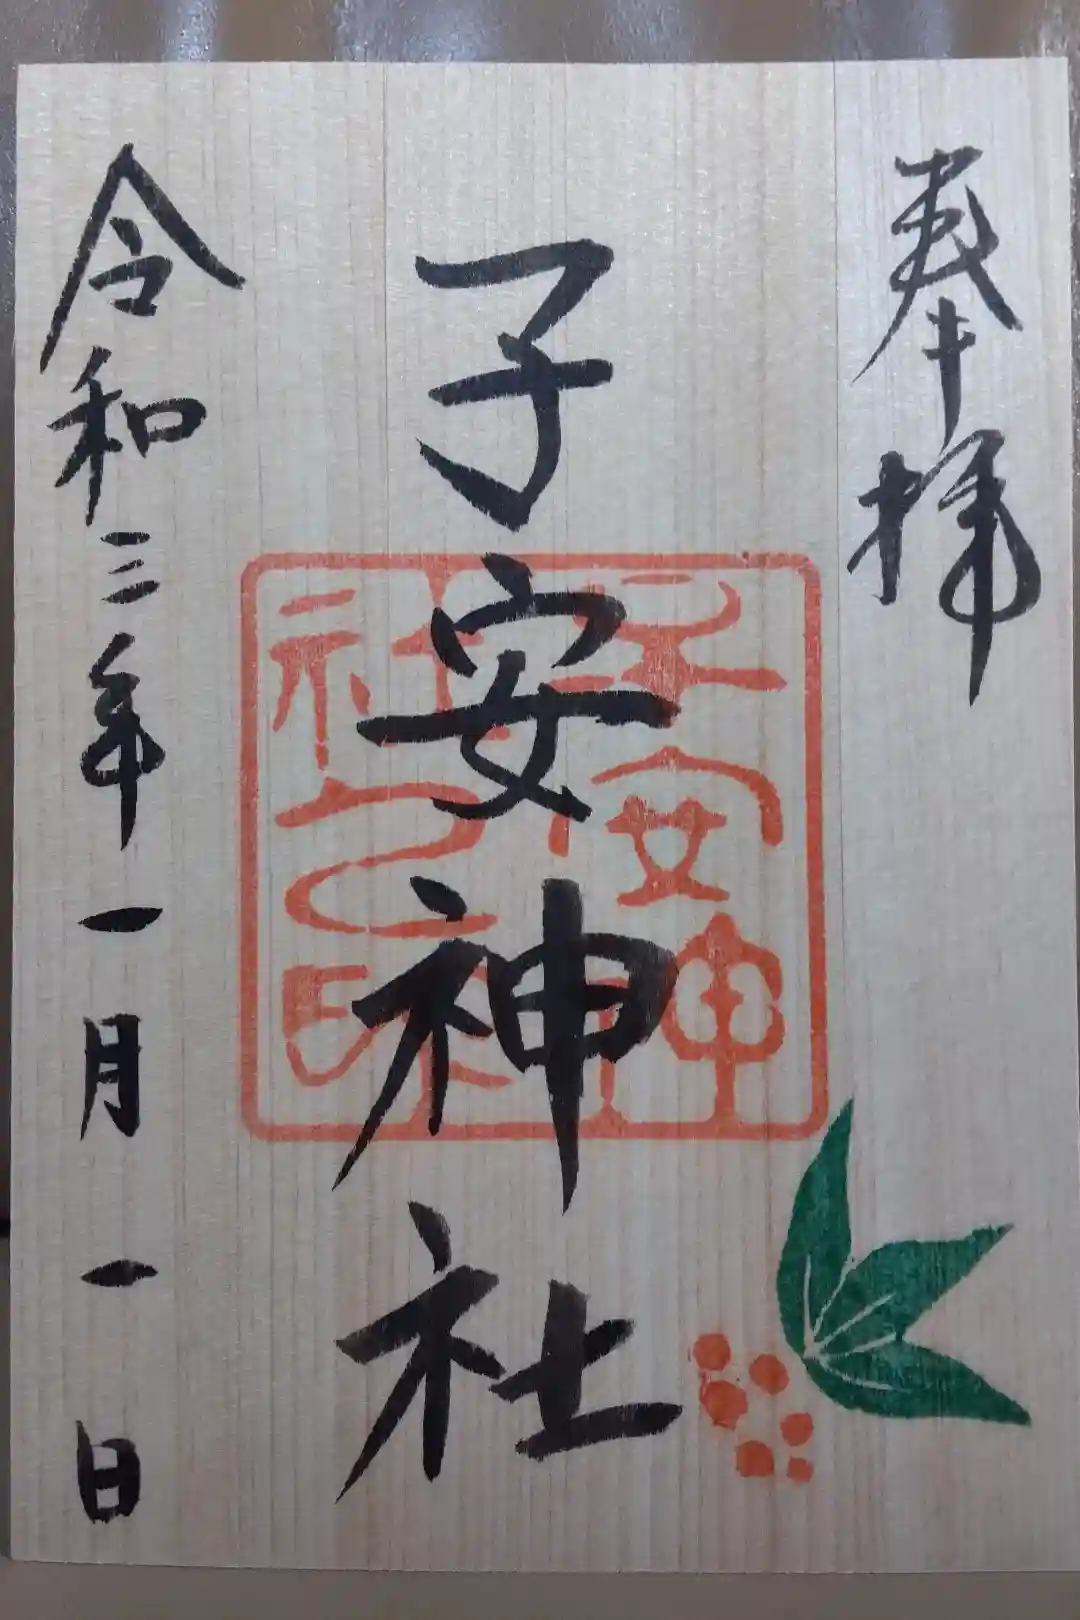 奉拝
子安神社
子安神社之印
令和三年一月一日